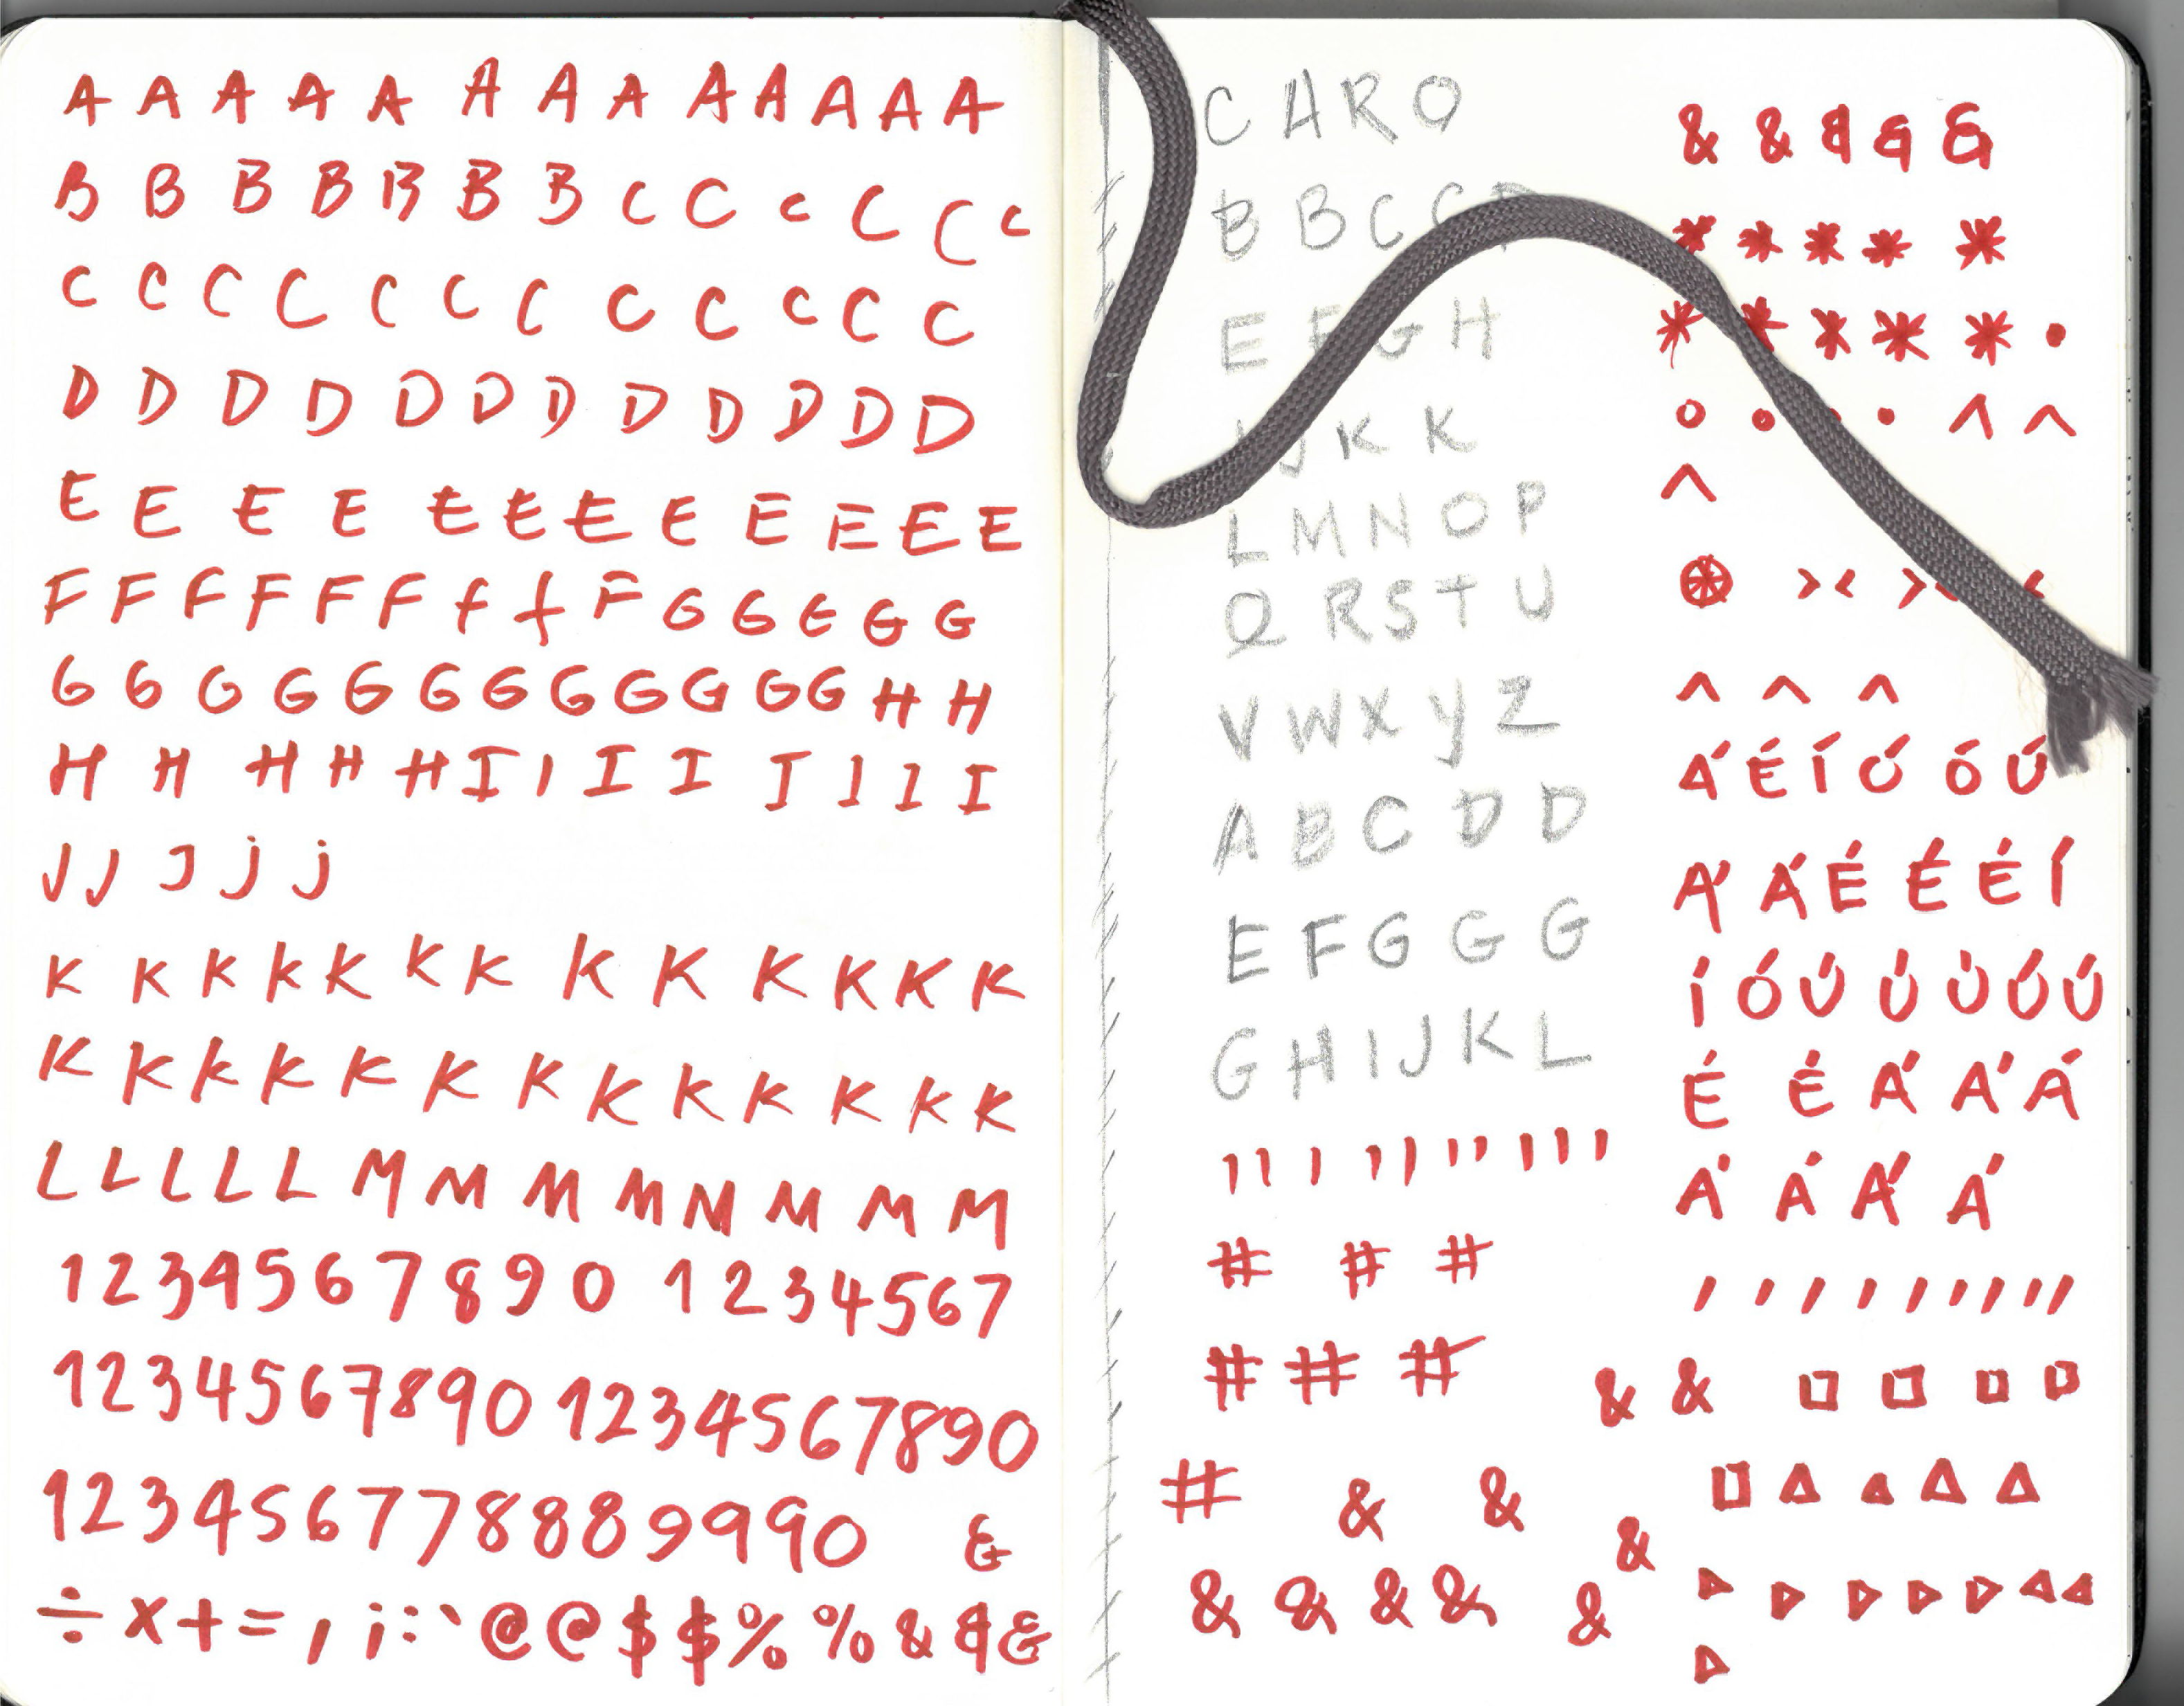 A A A A A A A A A A A A A
B B B B B B B C C C C C C
C C C C C C C C C C C C
D D D D D D D D D D D D
E E E E E E E E E E E E
F F F F F F f f F G G G G G
G G G G G G G G G G G G H H
H H H H H I I I I I I I I
J J J j j
K K K K K K K K K K K K K
K K K K K K K K K K K K K
L L L L L M M M M N M M M
1 2 3 4 5 6 7 8 9 0 1 2 3 4 5 6 7
1 2 3 4 5 6 7 8 9 0 1 2 3 4 5 6 7 8 9 0
1 2 3 4 5 6 7 7 8 8 8 9 9 9 0 &
÷ x + = , ¡ : ` @ @ $ $ % % & & &
C A R O
B B C C
E F G H
J K K
L M N O P
Q R S T U
V W X Y Z
A B C D D
E F G G G
G H I J K L
' ' ' ' ' ' ' ' ' '
# # #
# # #
# & &
& & & &
& & & & &
* * * * *
* * * * * •
° • • • ^ ^
^
> < > < <
^ ^ ^
Á É Í Ó Ó Ú
Á Á É É É Í
Í Ó Ú Ú Ú Ú Ú
É É Á Á Á
Á Á Á Á
, , , , , , , , ,
& & □ □ □ □
□ △ △ △ △
&
& ▷ ▷ ▷ ▷ ▷ ◁ ◁
▷